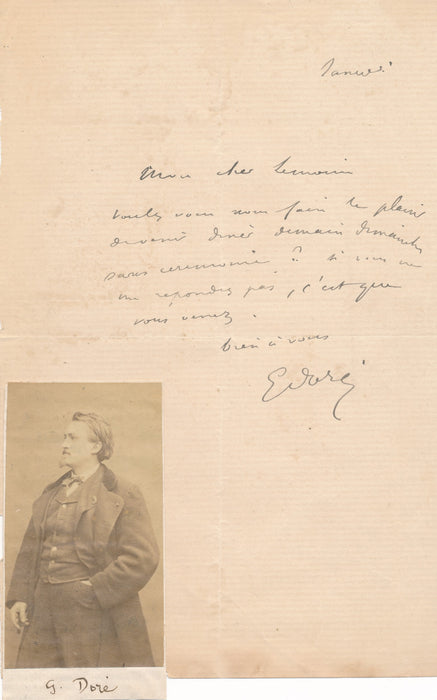 Samedi
Mon cher Lemoine
voulez vous nous faire le plaisir
de venir diner demain dimanche
sans ceremonie ? si vous ne
me repondez pas, c'est que
vous venez.
bien à vous
G Doré
G. Doré